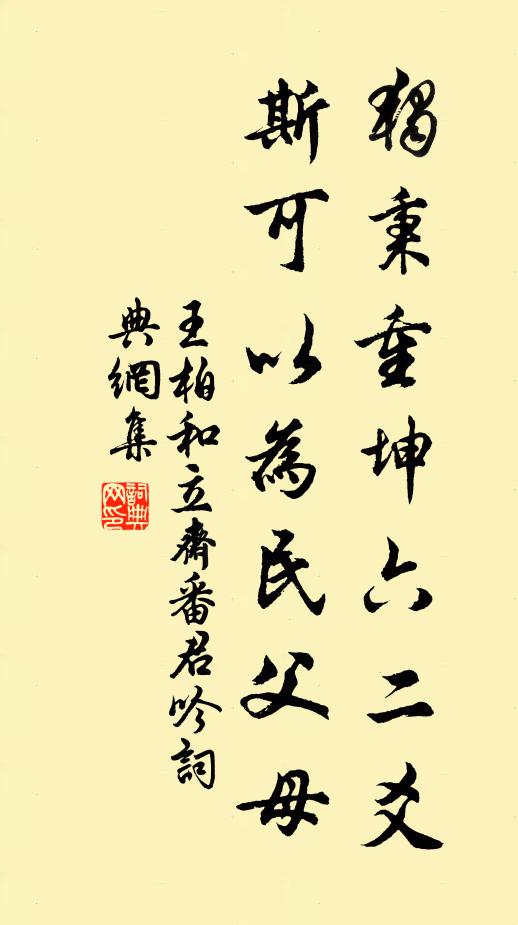 獨秉重坤六二爻
斯可以為民父母
王柏和立齋番君吟詞
典網集
詞典
网印